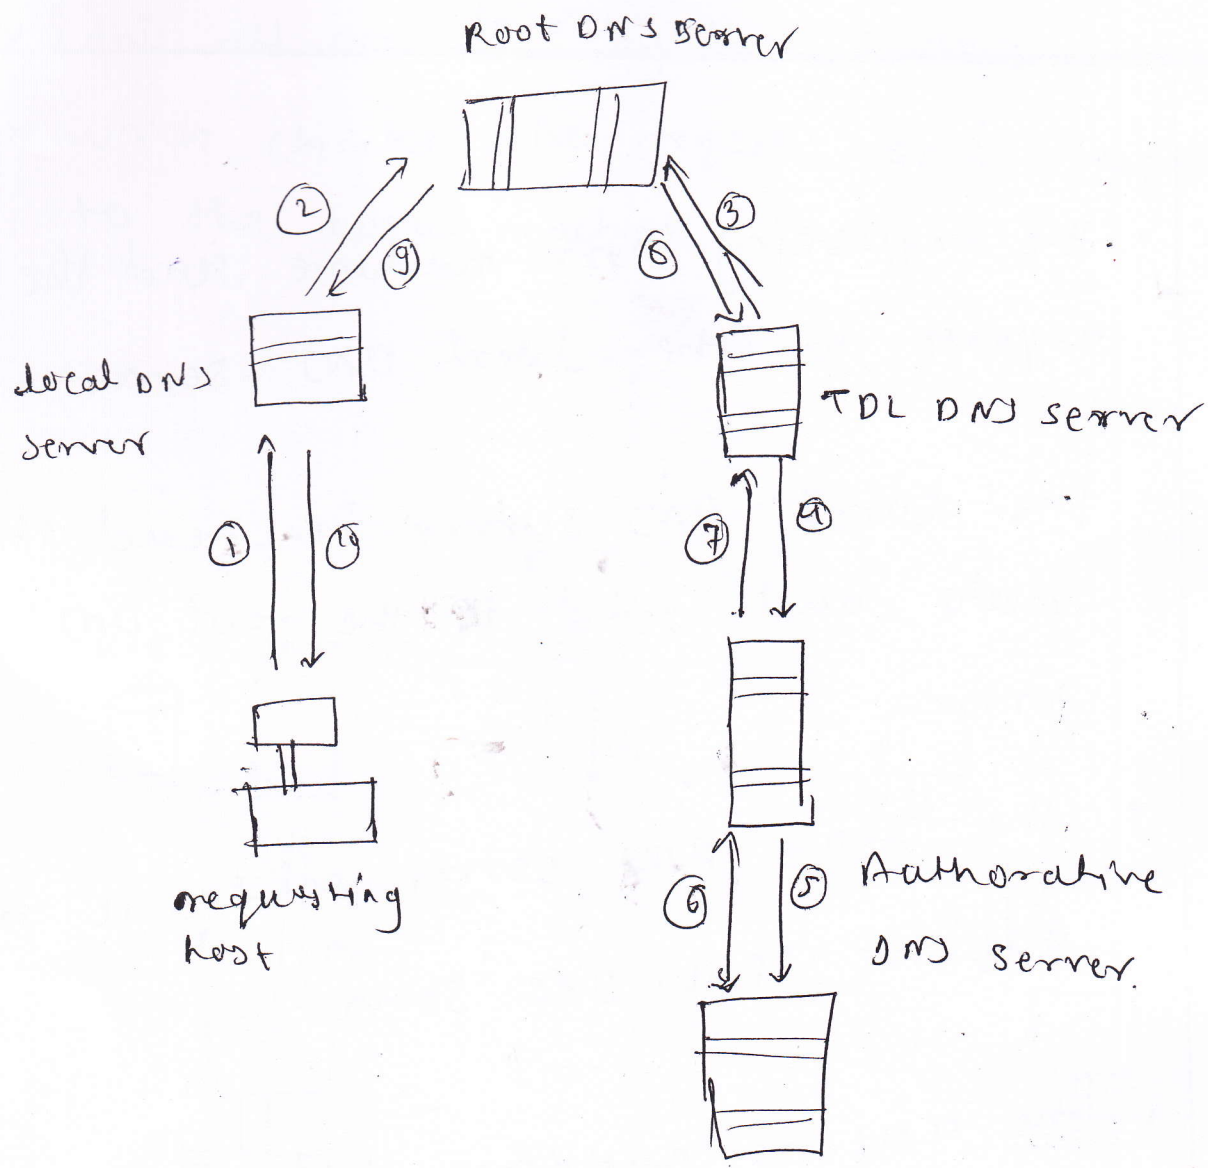 Root DNS Server
2
3
9
6
local DNS
server
TDL DNS server
1
10
7
4
requesting
host
6
5
Authorative
DNS server.